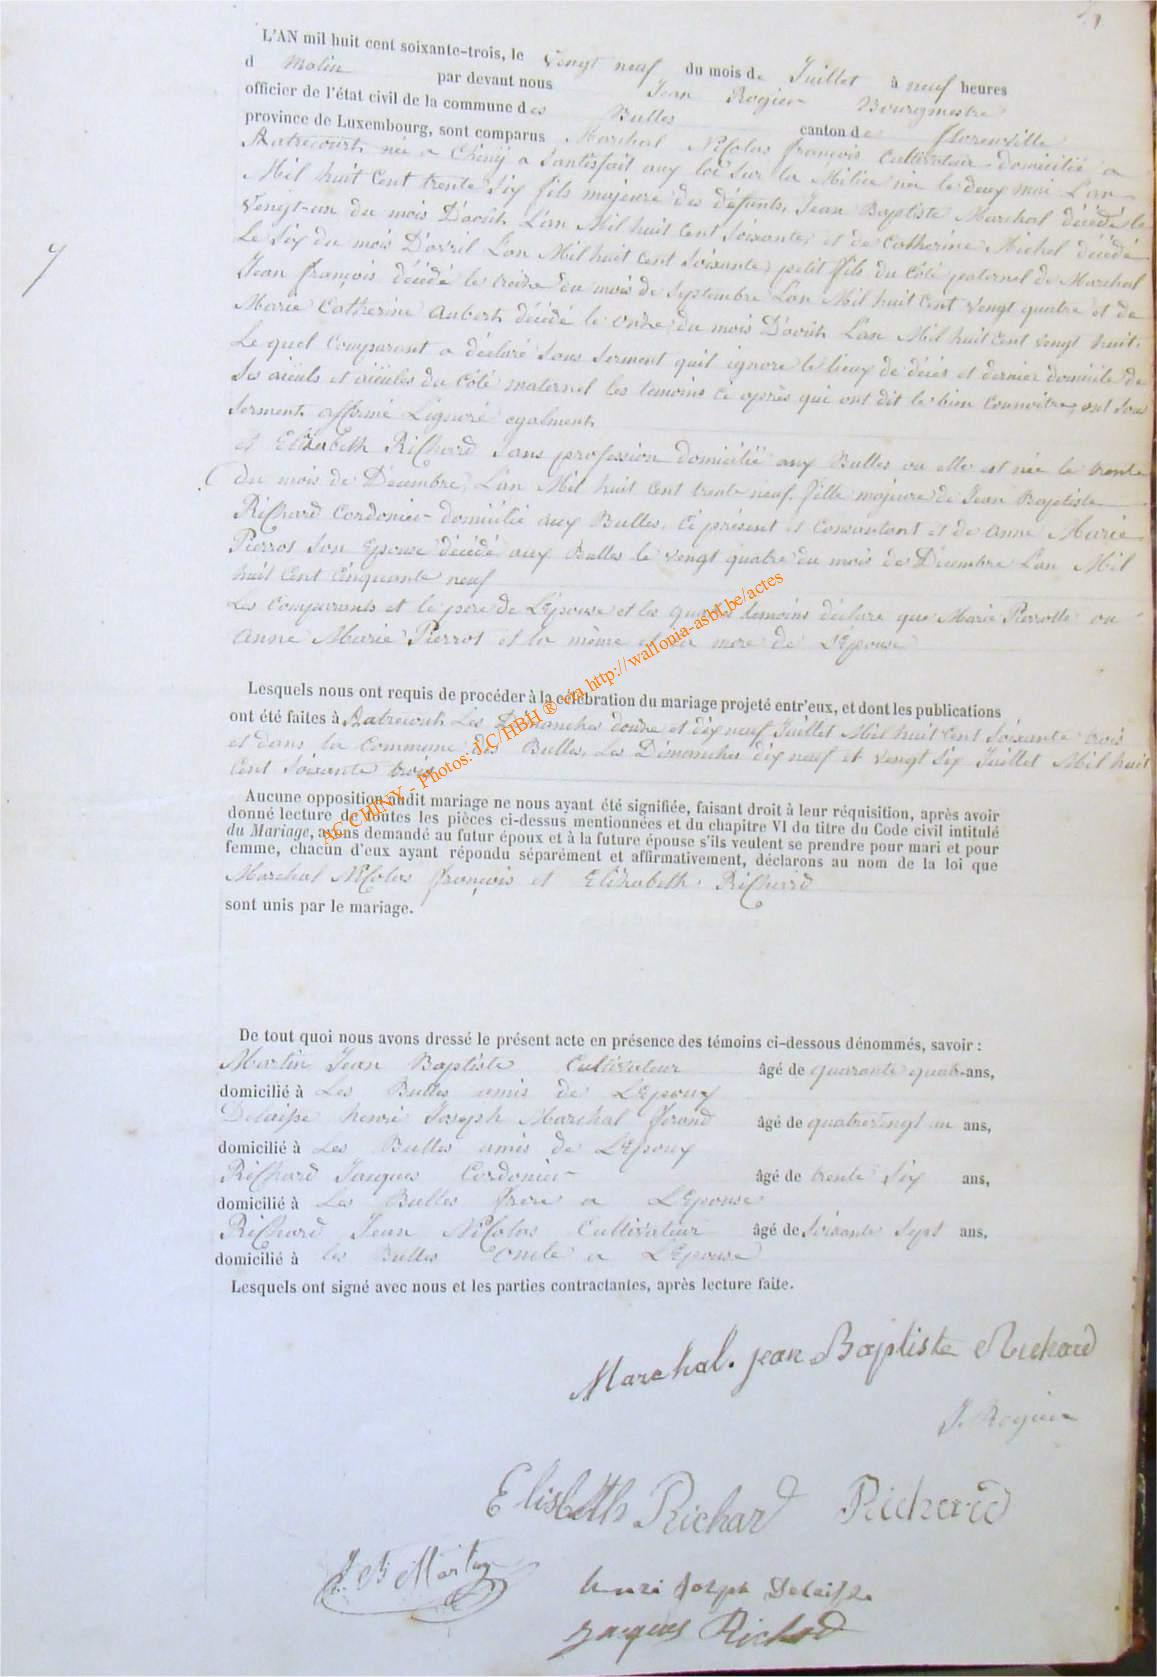 L'AN mil huit cent soixante-trois, le Vengt neuf du mois de Juillet à neuf heures
d Matin par devant nous Jean Rogier Bourgmestre
officier de l'état civil de la commune des Bulles canton de florenville
province de Luxembourg, sont comparus Marchal Nicolas françois Cultivateur domicilié a
née a Chiny a Santisfait aux loi Sur la Milice née le deux mai L'an
Mil huit Cent trente Six fils majeure des défunts, Jean Baptiste Marchal décédé le
Vengt-un du mois D'août L'an Mil huit Cent Soixante, et de Catherine Michel décédé
Le Six du mois D'avril L'an Mil huit Cent Soixante, petit fils du Côté paternel de Marchal
Jean françois décédé le treize du mois de Septembre L'an Mil huit Cent vengt quatre et de
Marie Catherine Aubert décédé le Onze du mois D'août L'an Mil huit Cent vengt huit.
Le quel Comparant a déclaré Sous Serment quil ignore le lieux de décès et dernier domicile de
Ses aïeuls et aïeules du Côté maternel les temoins Ci après qui ont dit le bien Connoître, ont Sous
Serment affirmé L'ignoré egalment
et Elizabeth Richard Sans profession domicilié aux Bulles ou elle est née le trente
Du mois de Décembre, L'an Mil huit Cent trente neuf. fille majeure de Jean Baptiste
Richard Cordonier domicilié aux Bulles, Ci présent et Consentant et de Anne Marie
Pierrot Son Epouse décédé aux Bulles le vengt quatre du mois de Décembre L'an Mil
huit Cent Cinquante neuf
Les Comparants et le pere de L'épouse et les quatres temoins déclare que Marie Pierrotte ou
Anne Marie Pierrot et la même et la mere de L'Epouse
Lesquels nous ont requis de procéder à la célébration du mariage projeté entr'eux, et dont les publications
ont été faites à Les Dimanches douze et dix neuf Juillet Mil huit Cent Soixante trois
et dans la Commune des Bulles, Les Dimanches dix neuf et vengt Six Juillet Mil huit
Cent Soixante trois
Aucune opposition audit mariage ne nous ayant été signifiée, faisant droit à leur réquisition, après avoir
donné lecture de toutes les pièces ci-dessus mentionnées et du chapitre VI du titre du Code civil intitulé
du Mariage, avons demandé au futur époux et à la future épouse s'ils veulent se prendre pour mari et pour
femme, chacun d'eux ayant répondu séparément et affirmativement, déclarons au nom de la loi que
Marchal Nicolas françois et Elizabeth Richard
sont unis par le mariage.
AC CHINY - Photos: J.C/HBH ® via http://wallonia-asbl.be/actes
De tout quoi nous avons dressé le présent acte en présence des témoins ci-dessous dénommés, savoir :
Martin Jean Baptiste Cultivateur âgé de quarante quatre ans,
domicilié à Les Bulles amis de L'Epoux
Delaisse henri Joseph Marchal ferand âgé de quatrevingt un ans,
domicilié à Les Bulles amis de L'Epoux
Richard Jacques Cordonier âgé de trente Six ans,
domicilié à Les Bulles frere a L'Epouse
Richard Jean Nicolas Cultivateur âgé de Soixante Sept ans,
domicilié à les Bulles Oncle a L'Epouse
Lesquels ont signé avec nous et les parties contractantes, après lecture faite.
Marchal. jean Baptiste Richard
J. Rogier
Elisbeth Richard Richard
J. B. Martin henri Joseph Delaisse
jacques Richard